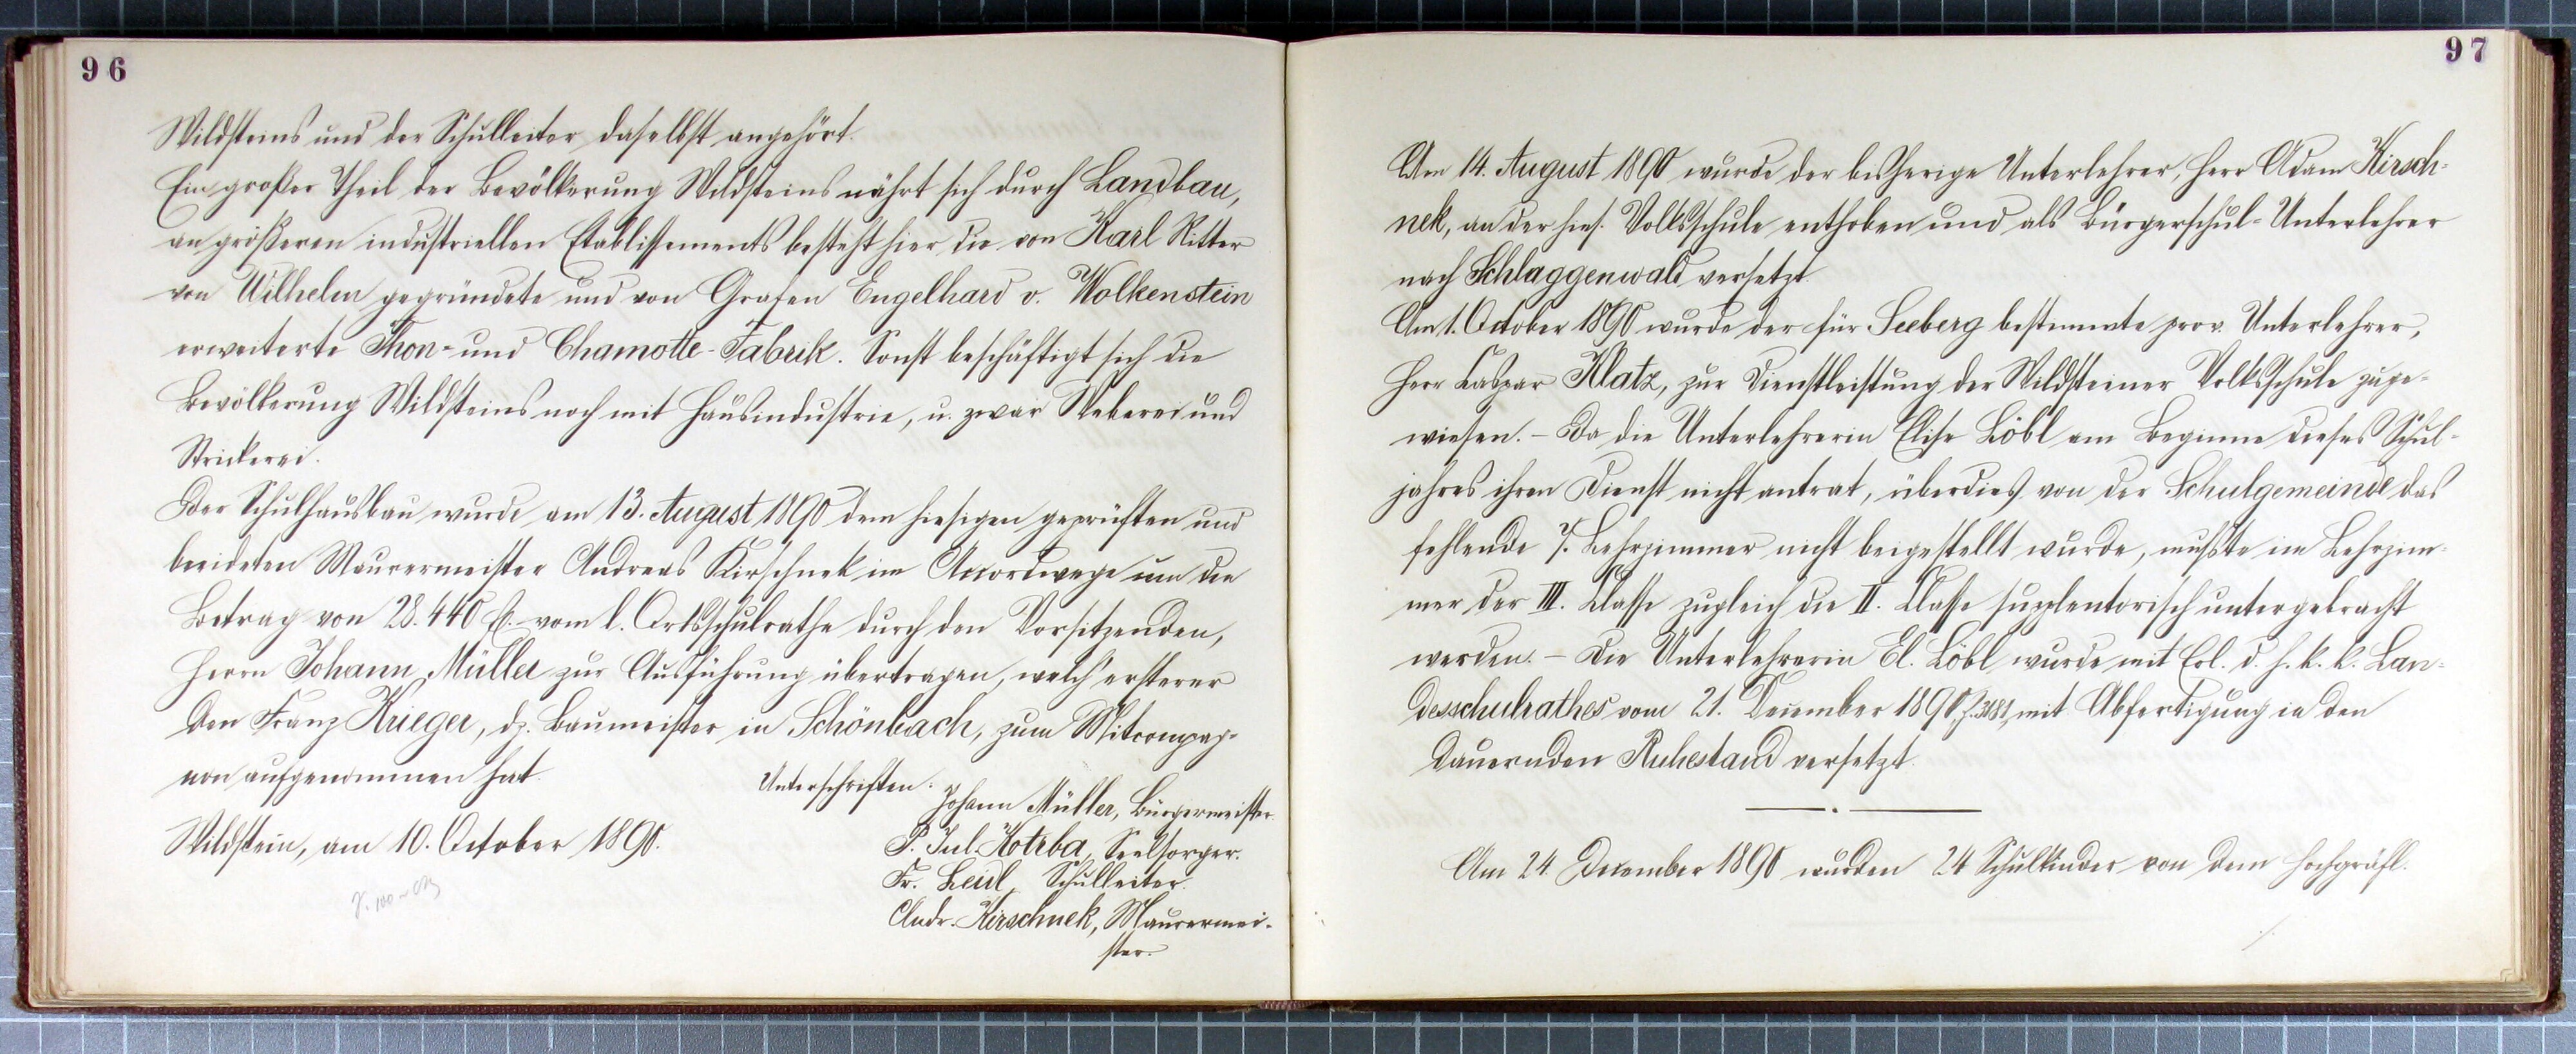 96
Wildsteins und der Schulleiter daselbst angehört.
Ein großer Theil der Bevölkerung Wildsteins nährt sich durch Landbau,
an größeren industriellen Etablissements besteht hier die von Karl Ritter
von Wilhelm gegründete und von Grafen Engelhard v. Wolkenstein
erweiterte Thon- und Chamotte-Fabrik. Sonst beschäftigt sich die
Bevölkerung Wildsteins noch mit Hausindustrie, u. zwar Weberei und
Strickerei.
Der Schulhausbau wurde am 13. August 1890 dem hiesigen geprüften und
beeideten Maurermeister Andreas Kirschnek im Accordwege um die
Betrag von 28.440 fl. vom l. Ortsschulrathe durch den Vorsitzenden,
Herrn Johann Müller zur Ausführung übertragen, welch' ersterer
den Franz Krieger, dz. Baumeister in Schönbach, zum Mitcompag-
non aufgenommen hat.
Unterschriften:
Johann Müller, Bürgermeister.
Wildstein, am 10. October 1890.
P. Jul. Kotrba, Seelsorger.
Fr. Leidl, Schulleiter.
Andr. Kirschnek, Maurermei-
ster.
97
Am 14. August 1890 wurde der bisherige Unterlehrer, Herr Adam Kirsch-
nek, an der hies. Volksschule enthoben und als Bürgerschul-Unterlehrer
nach Schlaggenwald versetzt.
Am 1. October 1890 wurde der für Seeberg bestimmte prov. Unterlehrer,
Herr Kaspar Klatz, zur Dienstleistung der Wildsteiner Volksschule zuge-
wiesen. – Da die Unterlehrerin Elise Löbl am Beginne dieses Schul-
jahres ihren Dienst nicht antrat, überdies von der Schulgemeinde das
fehlende 7. Lehrzimmer nicht beigestellt wurde, mußte im Lehrzim-
mer der III. Klasse zugleich die II. Klasse supplentorisch untergebracht
werden. – Die Unterlehrerin El. Löbl wurde mit Erl. d. h. k. k. Lan-
desschulrathes vom 21. December 1890, mit Abfertigung in den
dauernden Ruhestand versetzt.
Am 24. December 1890 wurden 24 Schulkinder von dem hochgräfl.
./.